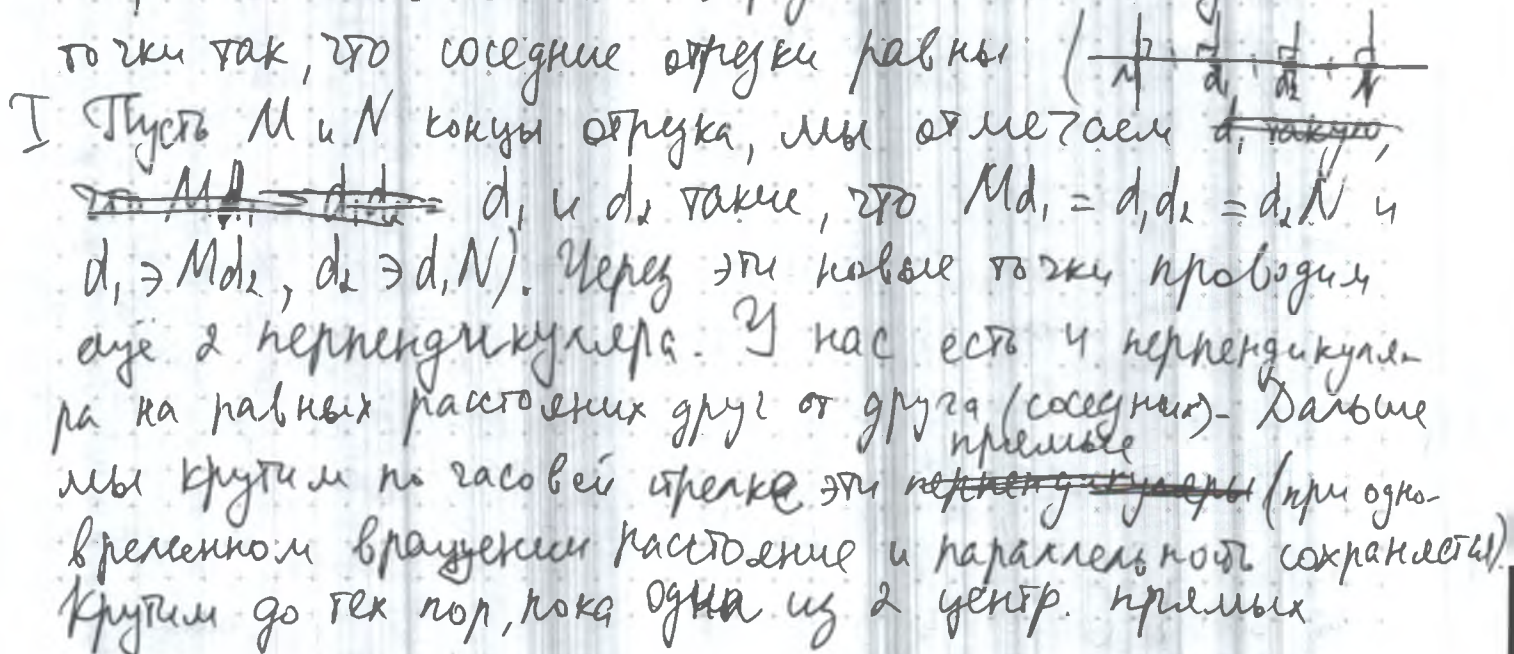 точки так, что соседние отрезки равны (M d₁ d₂ N
I Пусть M и N концы отрезка, мы отмечаем d₁ такую,
что Md₁ = d₁d₂ d₁ и d₂ такие, что Md₁ = d₁d₂ = d₂N и
d₁ ∋ Md₂, d₂ ∋ d₁N). Через эти новые точки проводим
ещё 2 перпендикуляра. У нас есть 4 перпендикуля-
ра на равных расстояних друг от друга (соседних). Дальше
прямые
мы крутим по часовой стрелке эти перпендикуляры (при одно-
временном вращении расстояние и параллельность сохраняется).
Крутим до тех пор, пока одна из 2 центр. прямых